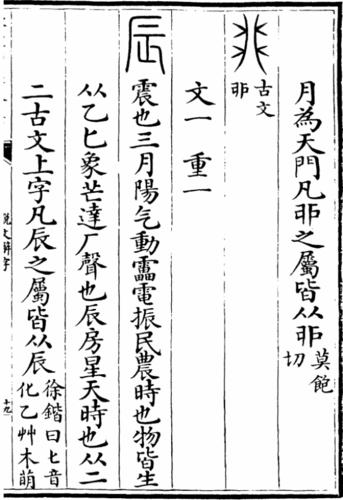 月為天門凡丣之屬皆从丣莫飽切
古文丣
文一 重一
辰震也三月陽气動靁電振民農時也物皆生
从乙匕象芒達厂聲也辰房星天時也从二
二古文上字凡辰之屬皆从辰徐鍇曰匕音化乙艸木萌